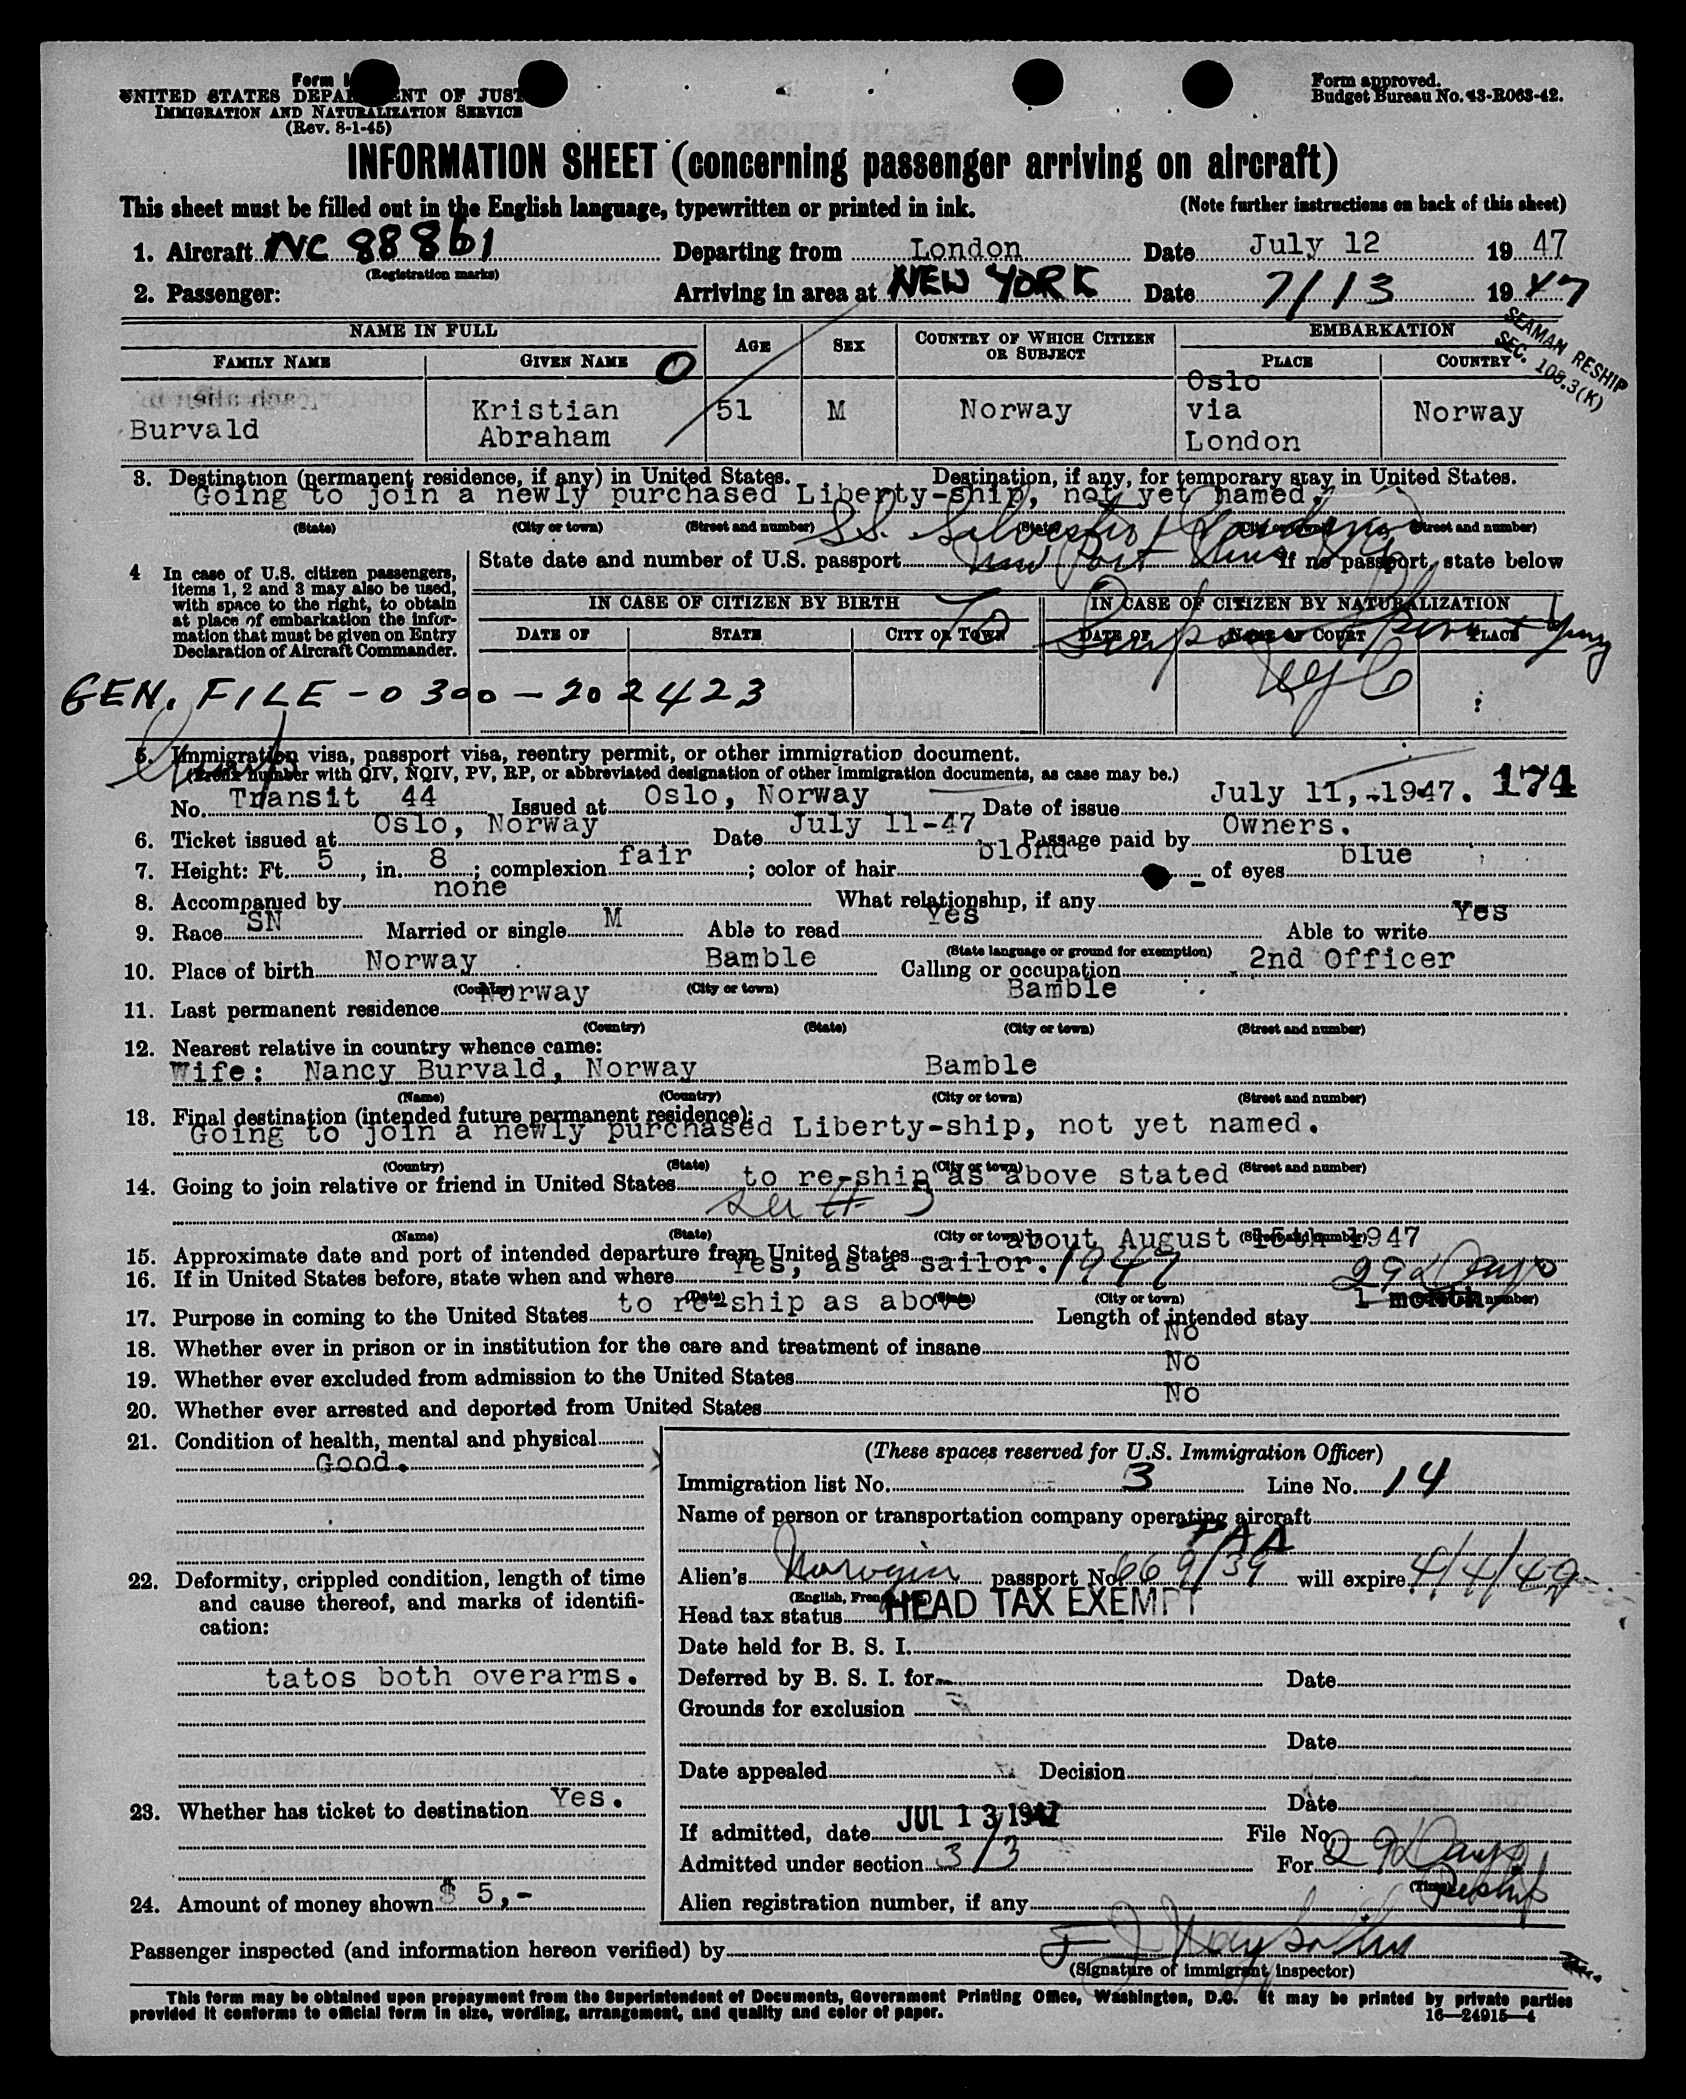 Form I
UNITED STATES DEPA ENT OF JUST
IMMIGRATION AND NATURALIZATION SERVICE
(Rev. 8-1-45)
Form approved.
Budget Bureau No. 43-R063-42.
INFORMATION SHEET (concerning passenger arriving on aircraft)
This sheet must be filled out in the English language, typewritten or printed in ink. (Note further instructions on back of this sheet)
1. Aircraft NC 88861 Departing from London Date July 12 1947
(Registration marks)
2. Passenger: Arriving in area at NEW YORK Date 7/13 1947
SEAMAN RESHIP
SEC. 108.3(K)
NAME IN FULL AGE SEX COUNTRY OF WHICH CITIZEN OR SUBJECT EMBARKATION
FAMILY NAME GIVEN NAME O PLACE COUNTRY
Burvald Kristian Abraham 51 M Norway Oslo via London Norway
3. Destination (permanent residence, if any) in United States. Destination, if any, for temporary stay in United States.
Going to join a newly purchased Liberty-ship, not yet named.
(State) (City or town) (Street and number) (State) (City or town) (Street and number)
S.S.
4 In case of U.S. citizen passengers, items 1, 2 and 3 may also be used, with space to the right, to obtain at place of embarkation the information that must be given on Entry Declaration of Aircraft Commander.
State date and number of U.S. passport If no passport, state below
IN CASE OF CITIZEN BY BIRTH IN CASE OF CITIZEN BY NATURALIZATION
DATE OF STATE CITY OR TOWN DATE OF NAME OF COURT PLACE
GEN. FILE - 0300 - 202423
5. Immigration visa, passport visa, reentry permit, or other immigration document.
(Prefix number with QIV, NQIV, PV, RP, or abbreviated designation of other immigration documents, as case may be.)
No. Transit 44 Issued at Oslo, Norway Date of issue July 11, 1947. 174
6. Ticket issued at Oslo, Norway Date July 11-47 Passage paid by Owners.
7. Height: Ft. 5, in. 8; complexion fair; color of hair blond of eyes blue
8. Accompanied by none What relationship, if any
9. Race SN Married or single M Able to read Yes Able to write Yes
(State language or ground for exemption)
10. Place of birth Norway Bamble Calling or occupation 2nd Officer
(Country) (City or town)
11. Last permanent residence Norway Bamble
(Country) (State) (City or town) (Street and number)
12. Nearest relative in country whence came:
Wife: Nancy Burvald, Norway Bamble
(Name) (Country) (City or town) (Street and number)
13. Final destination (intended future permanent residence):
Going to join a newly purchased Liberty-ship, not yet named.
(Country) (State) (City or town) (Street and number)
14. Going to join relative or friend in United States to re-ship as above stated
(Name) (State) (City or town) (Street and number)
15. Approximate date and port of intended departure from United States about August 15th 1947
16. If in United States before, state when and where Yes, as a sailor. 1947
(Date) (State) (City or town) (Street and number)
29 Days
17. Purpose in coming to the United States to re-ship as above Length of intended stay 1 month
18. Whether ever in prison or in institution for the care and treatment of insane No
19. Whether ever excluded from admission to the United States No
20. Whether ever arrested and deported from United States No
21. Condition of health, mental and physical
Good.
22. Deformity, crippled condition, length of time and cause thereof, and marks of identification:
tatos both overarms.
23. Whether has ticket to destination Yes.
24. Amount of money shown $ 5,-
(These spaces reserved for U.S. Immigration Officer)
Immigration list No. 3 Line No. 14
Name of person or transportation company operating aircraft
PAA
Alien's Norwegian passport No. 669/39 will expire 4/4/49
(English, Fren
Head tax status HEAD TAX EXEMPT
Date held for B. S. I.
Deferred by B. S. I. for Date
Grounds for exclusion
Date
Date appealed Decision
Date
If admitted, date JUL 13 1947 File No.
Admitted under section 3/3 For 29 Days
(Time)
Reship
Alien registration number, if any
Passenger inspected (and information hereon verified) by
(Signature of immigrant inspector)
This form may be obtained upon prepayment from the Superintendent of Documents, Government Printing Office, Washington, D.C. It may be printed by private parties
provided it conforms to official form in size, wording, arrangement, and quality and color of paper. 16—24915-4